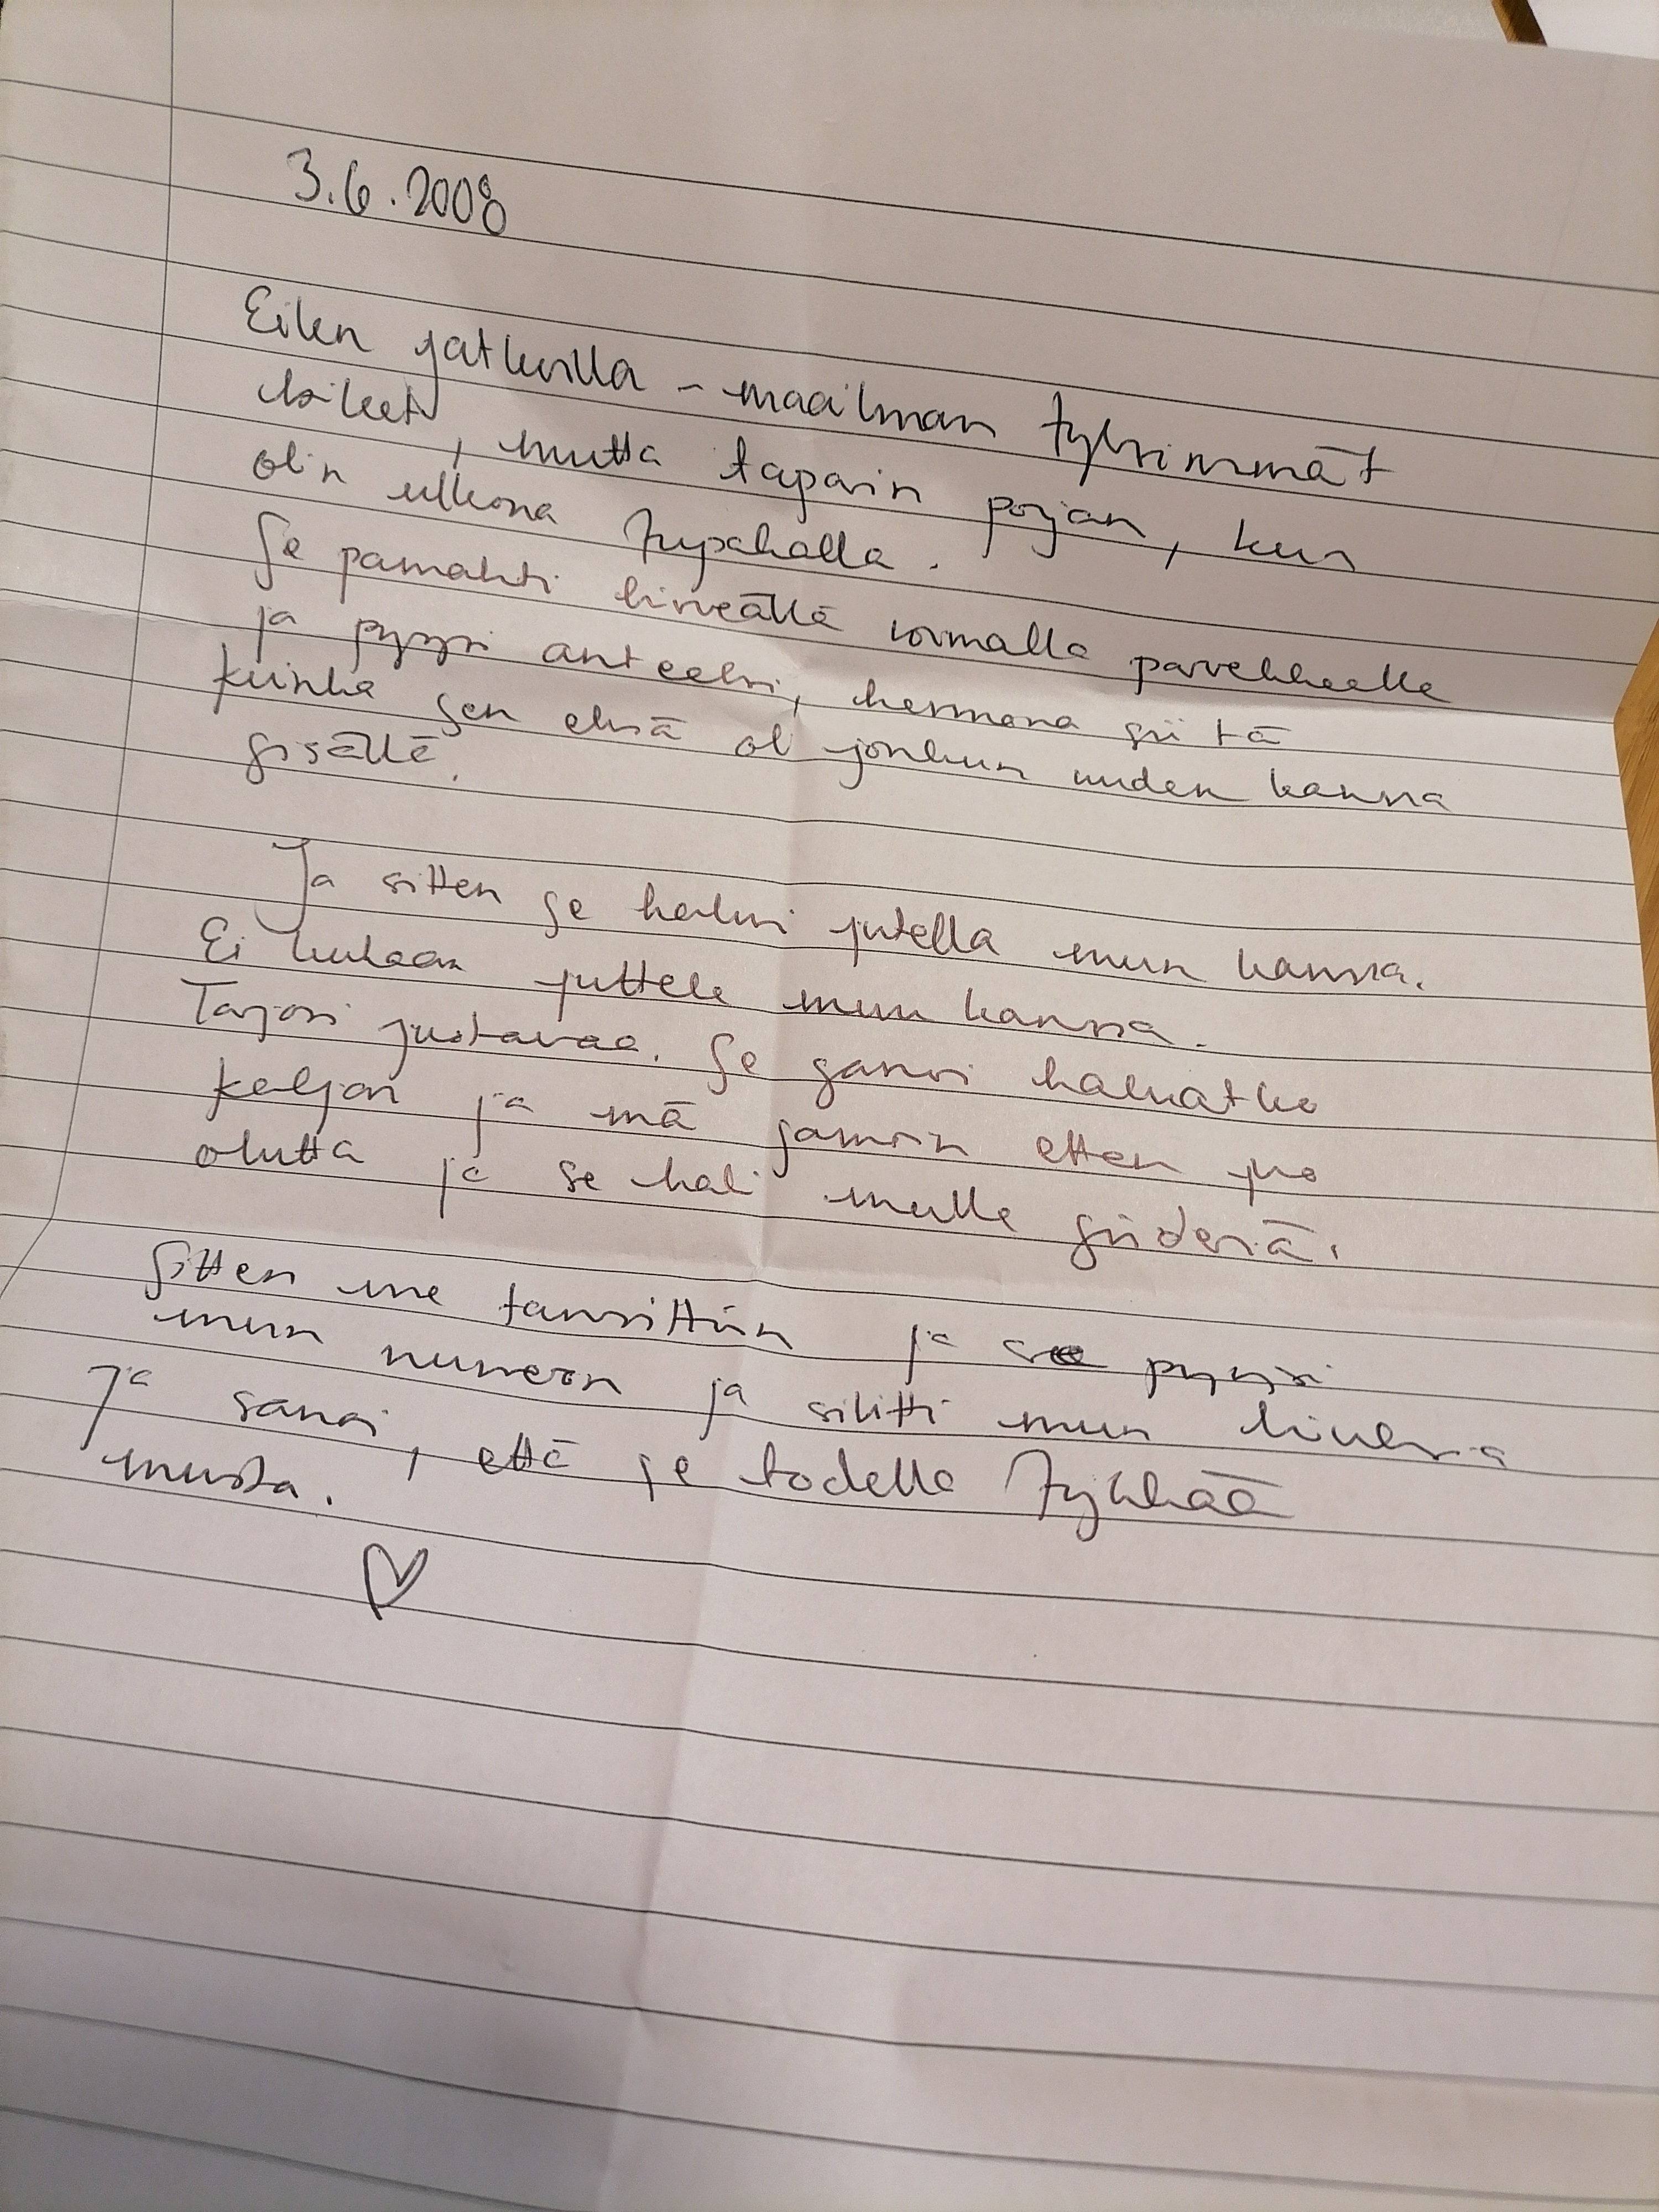 3.6.2008
Eilen jatkoilla - maailman tylsimmät
bileet, mutta tapasin pojan, kun
olin ulkona tupakalla.
Se pamahti hirveällä voimalla parvekkeelle
ja pyysi anteeksi, hermona siitä
kuinka sen eksä oli jonkun uuden kanssa
sisällä.
Ja sitten se halusi jutella mun kanssa.
Ei kukaan juttele mun kanssa.
Tarjosi juotavaa. Se sanoi haluatko
kaljan ja mä sanoin etten juo
olutta ja se haki mulle siideriä.
Sitten me tanssittiin ja se pyysi
mun numeron ja silitti mun hiuksia
ja sanoi, että se todella tykkää
musta.